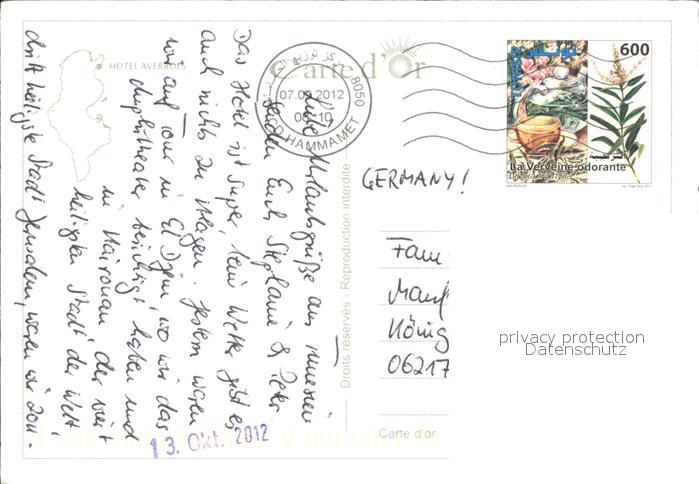 HOTEL AVERROES
Carte d'Or
8050
07.09.2012
08-10
HAMMAMET
تونس
600
La Verveine odorante
GERMANY!
Liebe Urlaubsgrüße aus Tunesien
senden Euch Stephanie & Peter
Das Hotel ist super, beim Wetter gibt es
auch nichts zu klagen. Gestern waren
wir auf Tour in El Djem, wo wir das
Amphitheater besichtigt haben und
in Kairouan der viert
heiligsten Stadt der Welt
dritt heiligste Stadt Jerusalem, waren wir 2011.
Droits réservés - Reproduction interdite
Fam
König
06217
privacy protection
Datenschutz
Carte d'or
13. Okt. 2012